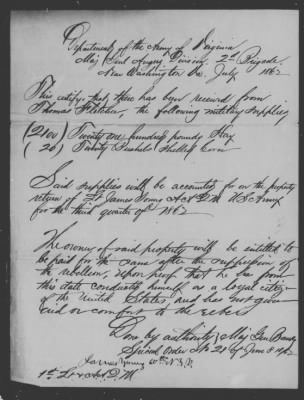 Department of the Army of Virginia
Maj Genl Augurs Division, 2nd Brigade
Near Washington Va. July 1862
This certify that there has been received from
Thomas Fletcher, the following military supplies
(2100) Twenty one hundred pounds Hay
(20) Twenty Bushels Shelled Corn
Said supplies will be accounted for on the property
return of Lt James Young Act Q.M. U.S. Army
for the third quarter of 1862
The owner of said property will be entitled to
be paid for the same after the suppression of
the rebellion, upon proof that he has from
this date conducted himself as a loyal citizen
of the United States, and has not given
aid or comfort to the rebels
Done by authority Maj Gen Banks
Special Order No 21 of June 1862
James Young 60th N.Y.V.
1st Lt & Act Q.M